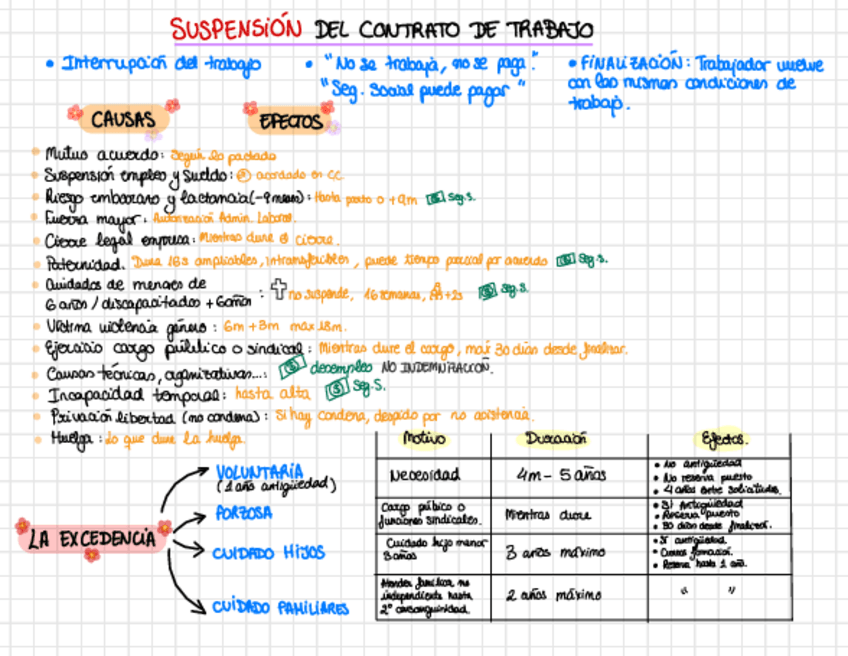 SUSPENSIÓN DEL CONTRATO DE TRABAJO
• Interrupción del trabajo
• "No se trabaja, no se paga."
"Seg. Social puede pagar"
• FINALIZACIÓN: Trabajador vuelve
con las mismas condiciones de
trabajo.
CAUSAS
EFECTOS
Mutuo acuerdo: Según lo pactado
Suspensión empleo y sueldo: acordado en CC.
Riesgo embarazo y lactancia (-9 meses): Hasta parto o +9m Seg.S.
Fuerza mayor: Autorización Admin. Laboral.
Cierre legal empresa: Mientras dure el cierre.
Paternidad. Dura 16s ampliables, intransferibles, puede tiempo parcial por acuerdo Seg.S.
Cuidados de menores de
6 años / discapacitados + 6 años : no suspende, 16 semanas, +2s Seg.S.
Víctima violencia género: 6m + 3m max 18m.
Ejercicio cargo público o sindical: Mientras dure el cargo, max 30 días desde finalizar.
Causas técnicas, organizativas...: desempleo NO INDEMNIZACIÓN.
Incapacidad temporal: hasta alta Seg.S.
Privación libertad (no condena): Si hay condena, despido por no asistencia.
Huelga: Lo que dure la huelga.
LA EXCEDENCIA
VOLUNTARIA
(1 año antigüedad)
FORZOSA
CUIDADO HIJOS
CUIDADO FAMILIARES
Motivo Duración Efectos.
Necesidad
4m - 5 años
• No antigüedad
• No reserva puesto
• 4 años entre solicitudes.
Cargo público o
funciones sindicales.
Mientras dure
• Sí Antigüedad
• Reserva puesto
• 30 días desde finalizar.
Cuidado hijo menor
3 años
3 años máximo
• Sí antigüedad.
• Cursos formación.
• Reserva hasta 1 año.
Atender familiar no
independiente hasta
2º consanguinidad.
2 años máximo
" "